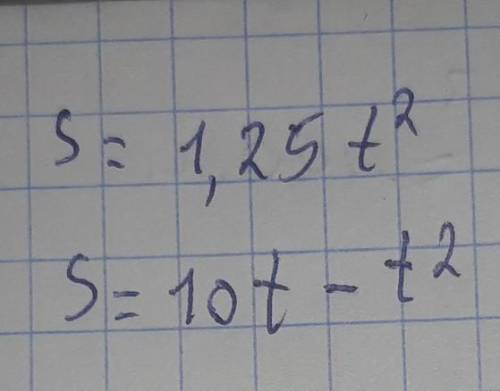 s = 1,25 t²
S = 10t - t²